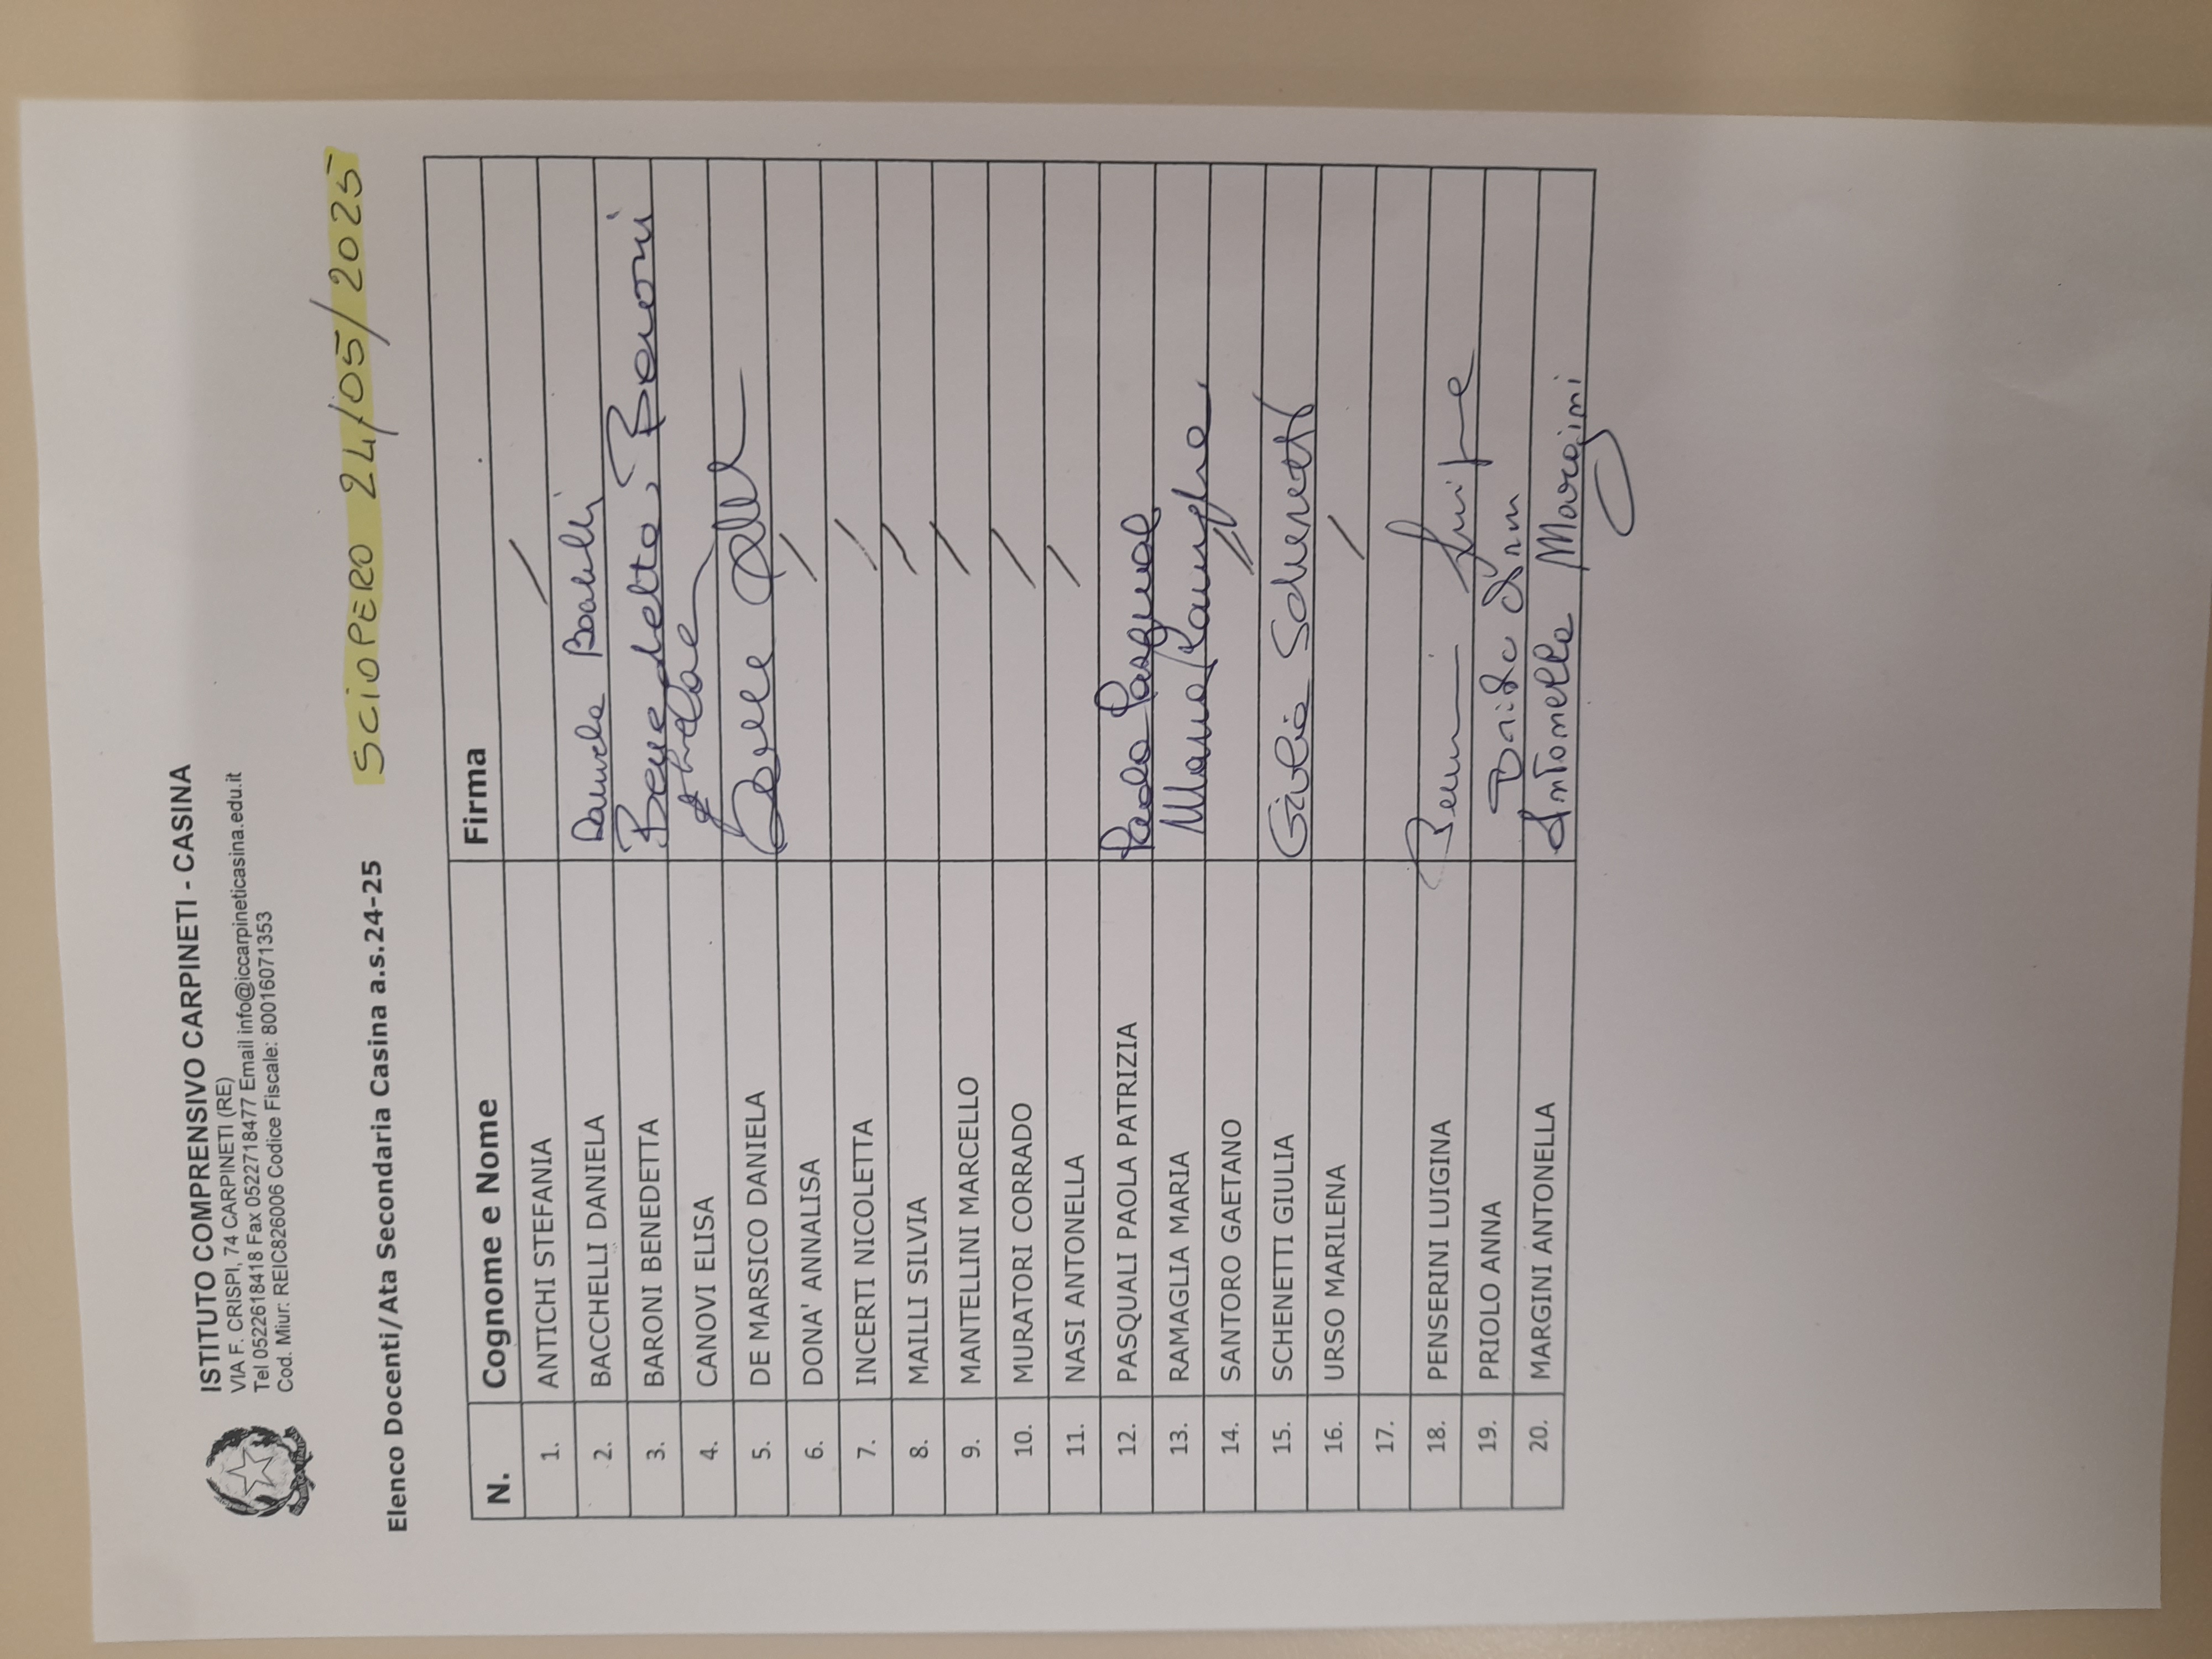 ISTITUTO COMPRENSIVO CARPINETI - CASINA
VIA F. CRISPI, 74 CARPINETI (RE)
Tel 0522618418 Fax 0522718477 Email info@iccarpineticasina.edu.it
Cod. Miur: REIC826006 Codice Fiscale: 80016071353
SCIOPERO 24/05/2025
Elenco Docenti/Ata Secondaria Casina a.s.24-25
N. Cognome e Nome Firma
1. ANTICHI STEFANIA /
2. BACCHELLI DANIELA Daniela Bacchelli
3. BARONI BENEDETTA Benedetta Baroni
4. CANOVI ELISA
5. DE MARSICO DANIELA
6. DONA' ANNALISA /
7. INCERTI NICOLETTA /
8. MAILLI SILVIA /
9. MANTELLINI MARCELLO /
10. MURATORI CORRADO /
11. NASI ANTONELLA /
12. PASQUALI PAOLA PATRIZIA Paola Pasquali
13. RAMAGLIA MARIA Maria Ramaglia
14. SANTORO GAETANO //
15. SCHENETTI GIULIA Giulia Schenetti
16. URSO MARILENA /
17.
18. PENSERINI LUIGINA
19. PRIOLO ANNA
20. MARGINI ANTONELLA Antonella Margini